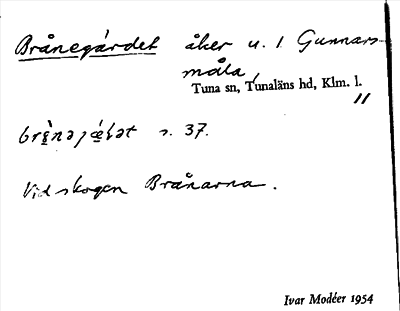 Brånegärdet åker u. 1 Gunnars-
måla,
Tuna sn, Tunaläns hd, Klm. l.
"
s. 37.
Vid skogen Brånarna.
Ivar Modéer 1954